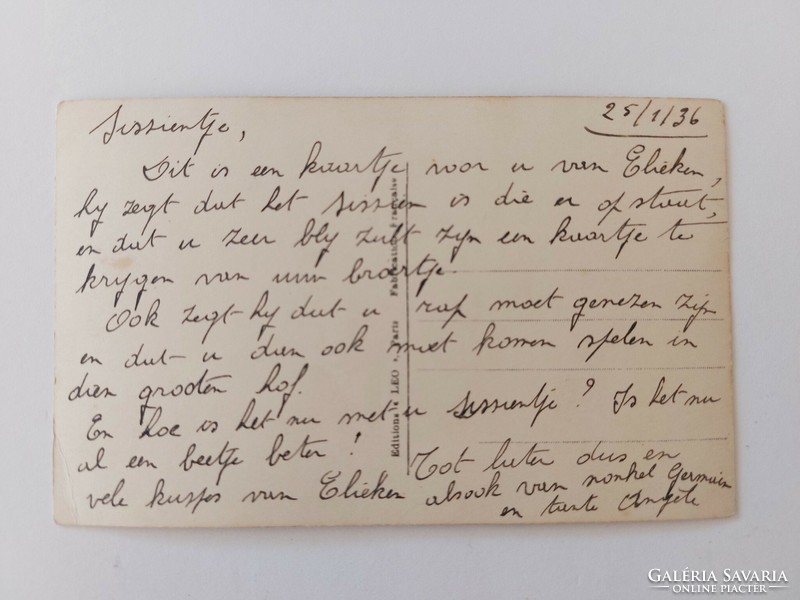 25/1/36
Sissientje,
Dit is een kaartje voor u van Elieken,
hy zegt dat het Sissien is die er op staat,
en dat u zeer bly zult zyn een kaartje te
krygen van uw broertje.
Ook zegt hy dat u rap moet genezen zyn
en dat u dan ook moet komen spelen in
dien grooten hof.
En hoe is het nu met u Sissientje? Is het nu
al een beetje beter!
Tot later dus en
vele kusjes van Elieken alsook van nonkel Germain
en tante Angèle
Editions LEO Paris Fabrication Française
GALÉRIA SAVARIA
ONLINE PIACTÉR